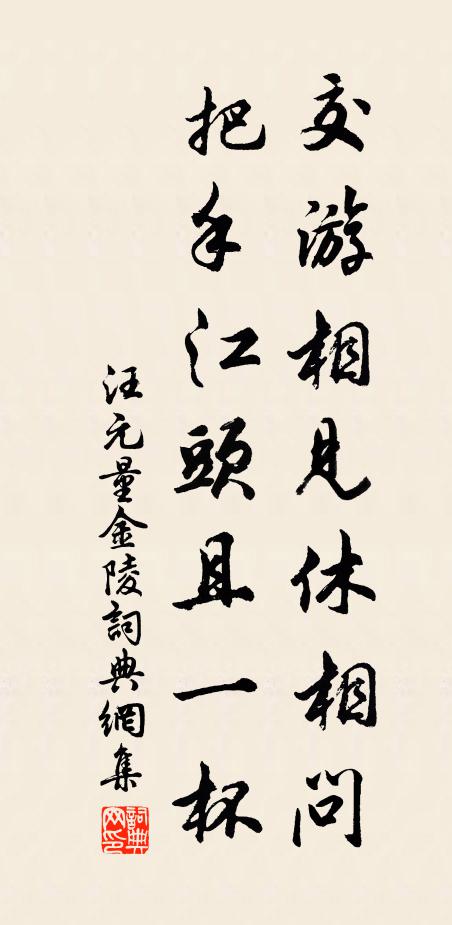 交游相見休相問
把手江頭且一杯
汪元量金陵詞典網集
詞典
网印